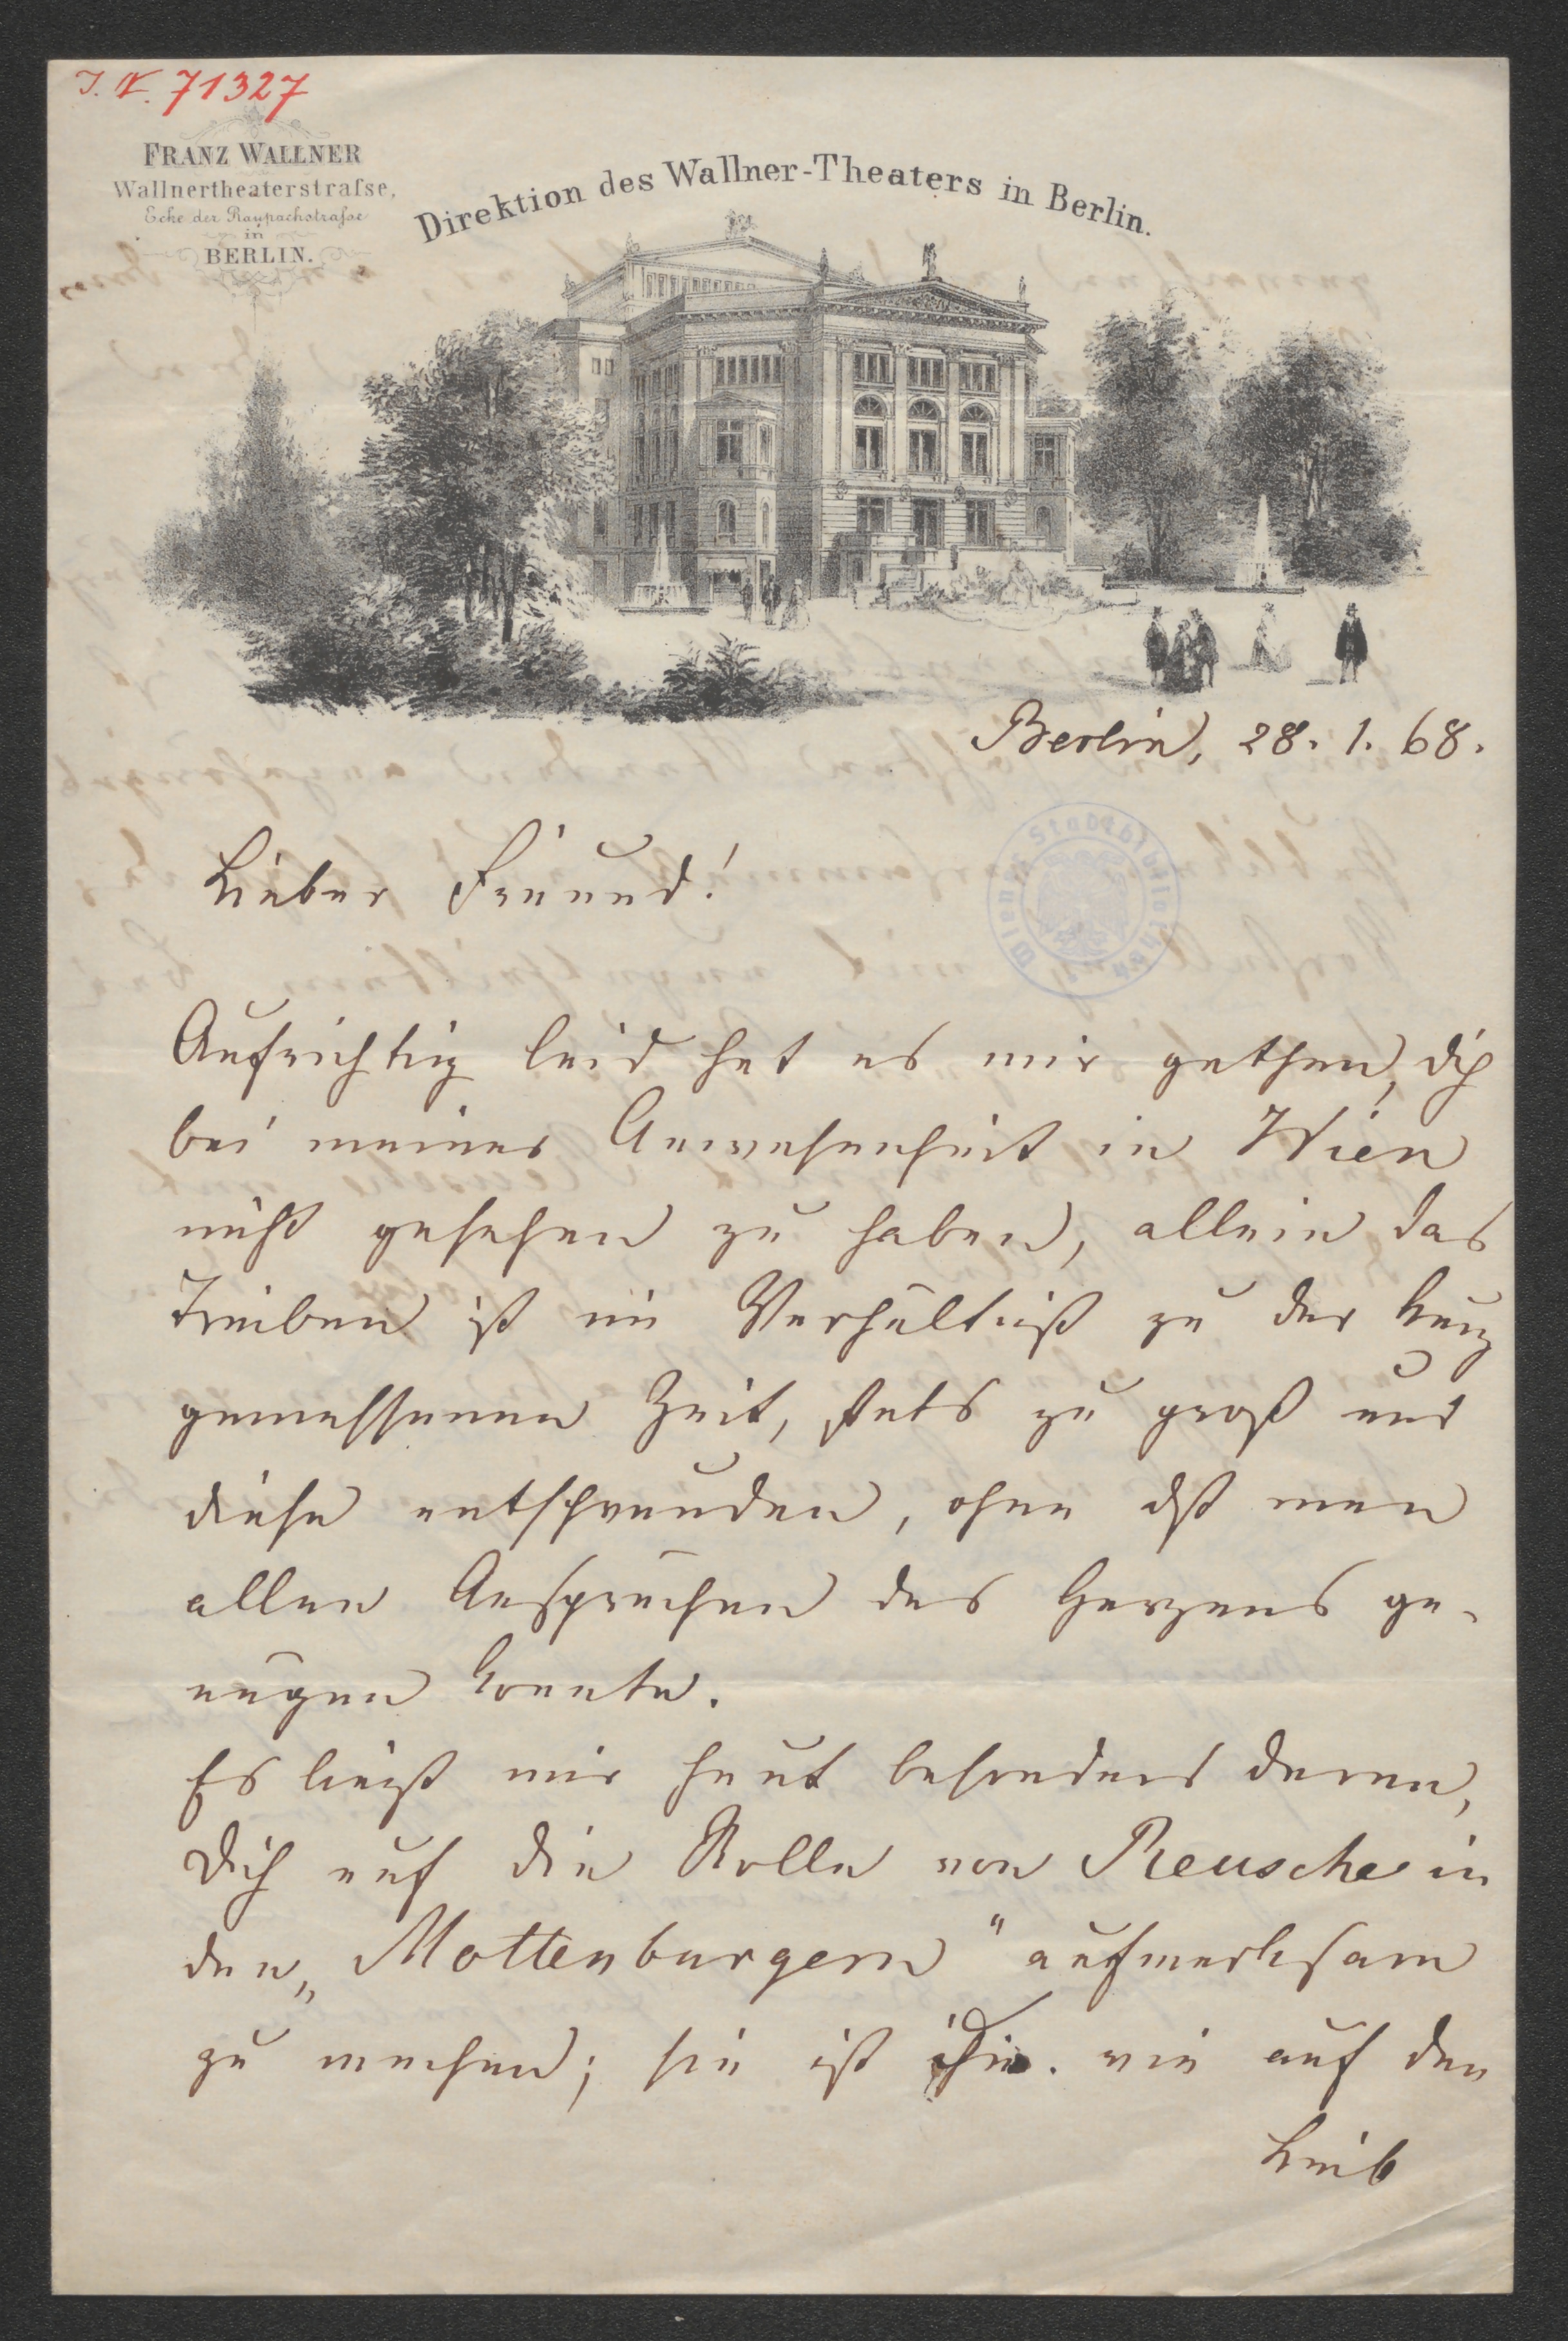 I. N. 71327
FRANZ WALLNER
Wallnertheaterstrafse,
Ecke der Raupachstrafse
in
BERLIN.
Direktion des Wallner-Theaters in Berlin.
Berlin, 28. 1. 68.
Wiener Stadtbibliothek
Lieber Freund!
Aufrichtig leid hat es mir gethan, dich
bei meiner Anwesenheit in Wien
nicht gesehen zu haben, allein das
Treiben ist im Verhältniß zu der kurz
gemessenen Zeit, stets zu groß und
diese entschwunden, ohne daß man
allen Ansprüchen des Herzens ge-
nügen konnte.
Es liegt mir heut besonders daran,
Dich auf die Rolle von Reusche in
den „Mottenburgern" aufmerksam
zu machen; sie ist wie auf den
Leib